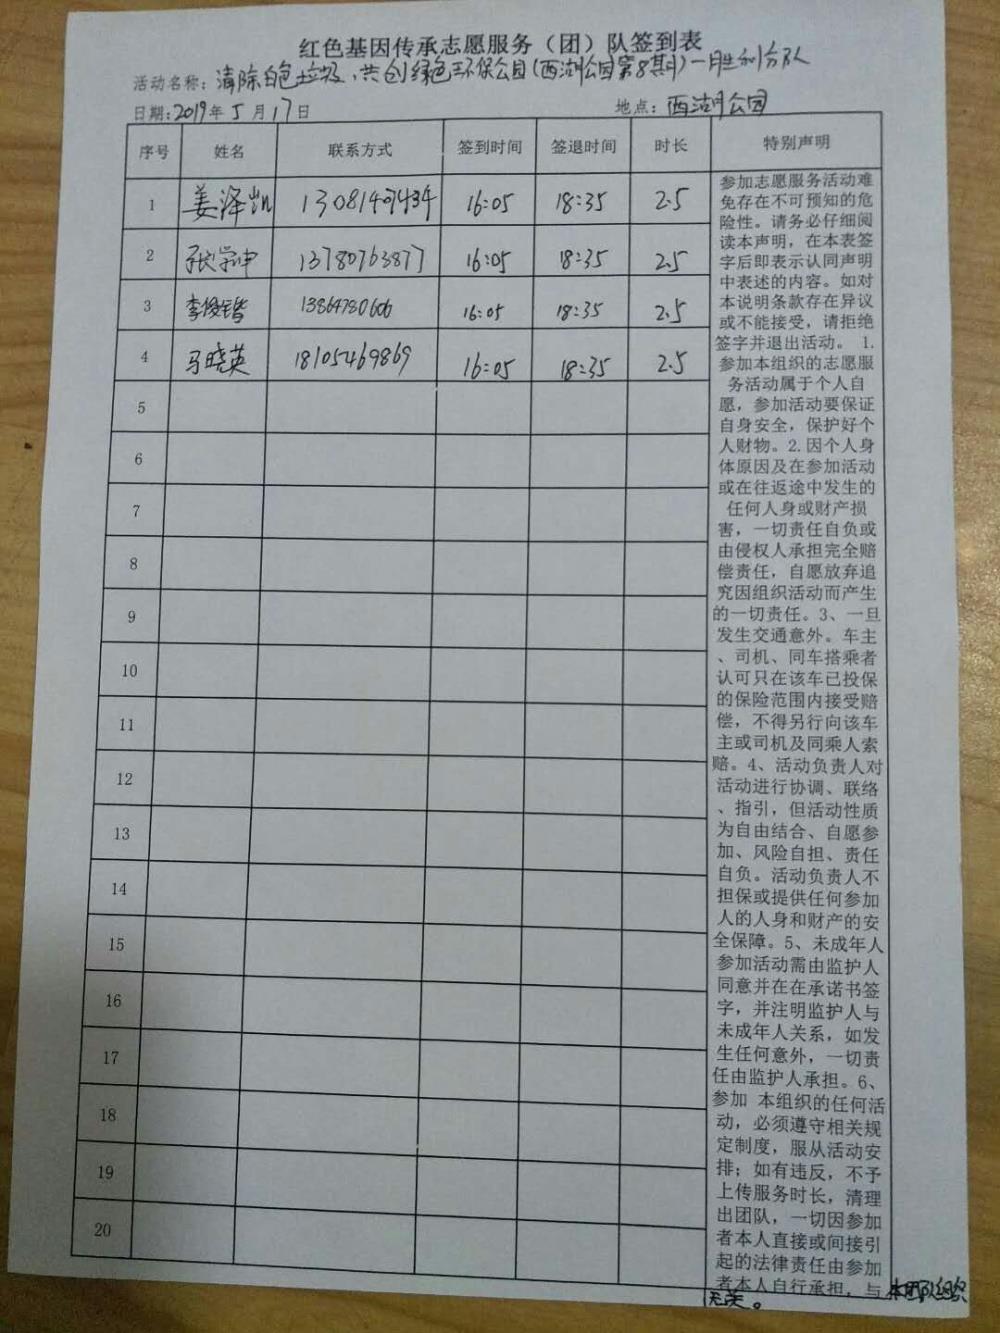 红色基因传承志愿服务（团）队签到表
活动名称：清除白色垃圾，共创绿色环保公园（西湖公园第8期）—胜利分队
日期：2019年5月17日 地点：西湖公园
序号 姓名 联系方式 签到时间 签退时间 时长 特别声明
1 姜泽凯 13081407434 16:05 18:35 2.5
2 张学申 13780763877 16:05 18:35 2.5
3 李俊锴 13864730606 16:05 18:35 2.5
4 马晓英 18105469869 16:05 18:35 2.5
5
6
7
8
9
10
11
12
13
14
15
16
17
18
19
20
参加志愿服务活动难
免存在不可预知的危
险性。请务必仔细阅
读本声明，在本表签
字后即表示认同声明
中表述的内容。如对
本说明条款存在异议
或不能接受，请拒绝
签字并退出活动。 1.
参加本组织的志愿服
务活动属于个人自
愿，参加活动要保证
自身安全，保护好个
人财物。2.因个人身
体原因及在参加活动
或在往返途中发生的
任何人身或财产损
害，一切责任自负或
由侵权人承担完全赔
偿责任，自愿放弃追
究因组织活动而产生
的一切责任。3、一旦
发生交通意外。车主
、司机、同车搭乘者
认可只在该车已投保
的保险范围内接受赔
偿，不得另行向该车
主或司机及同乘人索
赔。4、活动负责人对
活动进行协调、联络
、指引，但活动性质
为自由结合、自愿参
加、风险自担、责任
自负。活动负责人不
担保或提供任何参加
人的人身和财产的安
全保障。5、未成年人
参加活动需由监护人
同意并在在承诺书签
字，并注明监护人与
未成年人关系，如发
生任何意外，一切责
任由监护人承担。6、
参加 本组织的任何活
动，必须遵守相关规
定制度，服从活动安
排；如有违反，不予
上传服务时长，清理
出团队，一切因参加
者本人直接或间接引
起的法律责任由参加
者本人自行承担，与本团队组织
无关。